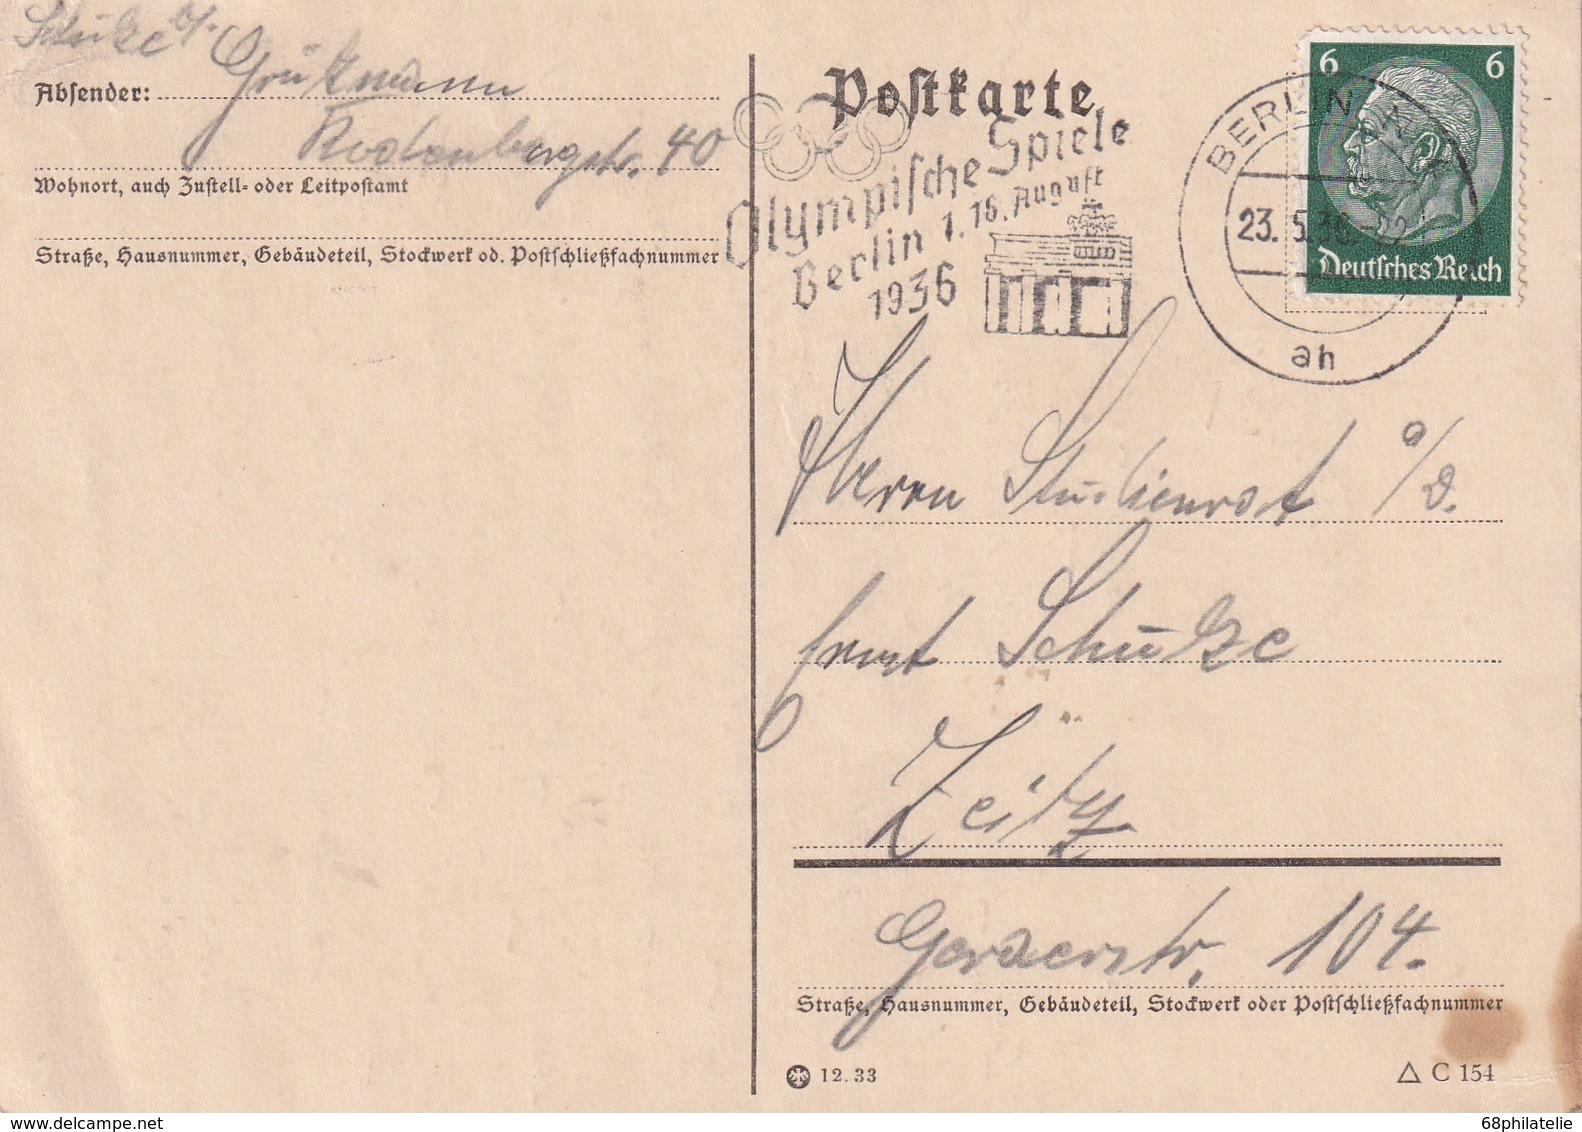 Schulze b/. Grützmann
Absender:
Rodenbergstr. 40
Wohnort, auch Zustell- oder Leitpostamt
Straße, Hausnummer, Gebäudeteil, Stockwerk od. Postschließfachnummer
Postkarte
Olympische Spiele
Berlin 1.-16. August
1936
BERLIN
23.5.36
ah
6 6
Deutsches Reich
Herrn Studienrat a/D.
Ernst Schulze
Zeitz
Geraerstr. 104.
Straße, Hausnummer, Gebäudeteil, Stockwerk oder Postschließfachnummer
12. 33
C 154
68philatelie